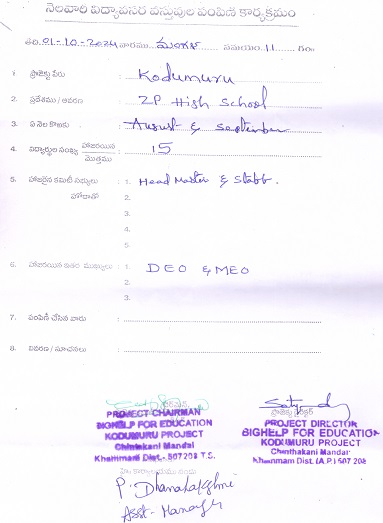 నెలవారి విద్యావసర వస్తువుల పంపిణీ కార్యక్రమం
తేది. 01-10-2024 వారము.. మంగళ సమయం. 11 గం॥
1 ప్రాజెక్టు పేరు : Kodumuru
2. ప్రదేశము / ఆవరణ : ZP High School
3. ఏ నెల కొఱకు : August & September
4. విద్యార్థుల సంఖ్య హాజరయిన మొత్తము : 15
5. హాజరైన కమిటీ సభ్యులు హోదాతో : 1. Head Master & Stabb.
2.
3.
4.
5.
6. హాజరయిన ఇతర ముఖ్యులు : 1. DEO & MEO
2.
3.
7. పంపిణీ చేసిన వారు :
8. వివరణ / సూచనలు :
PROJECT CHAIRMAN
BIGHELP FOR EDUCATION
KODUMURU PROJECT
Chintakani Mandal
Khammam Dist.- 507208 T.S.
ప్రాజెక్టు డైరెక్టర్
PROJECT DIRECTOR
BIGHELP FOR EDUCATION
KODUMURU PROJECT
Chinthakani Mandal
Khammam Dist. (A.P.) 507 208
P. Dhanalakshmi
Asst. Manager